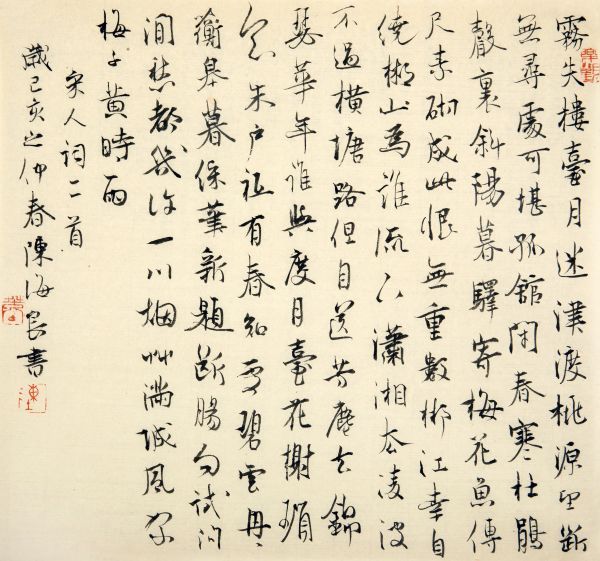 霧失樓臺月迷津渡桃源望斷
無尋處可堪孤館閉春寒杜鵑
聲裏斜陽暮驛寄梅花魚傳
尺素砌成此恨無重數郴江幸自
繞郴山爲誰流下瀟湘去凌波
不過橫塘路但目送芳塵去錦
瑟華年誰與度月臺花榭瑣
窗朱户祇有春知處碧雲冉〻
蘅皋暮綵筆新題斷腸句試問
閒愁都幾許一川烟艸滿城風絮
梅子黃時雨
宋人詞二首
歲己亥之仲春陳海良書